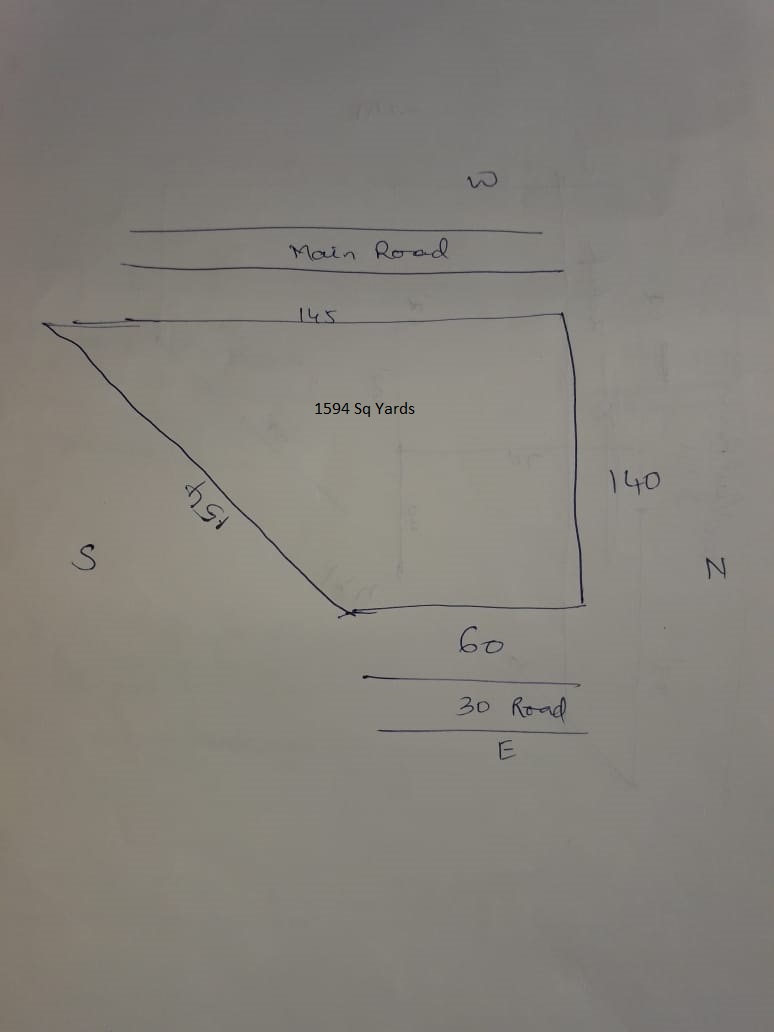 W
Main Road
145
1594 Sq Yards
140
154
S
N
60
30 Road
E